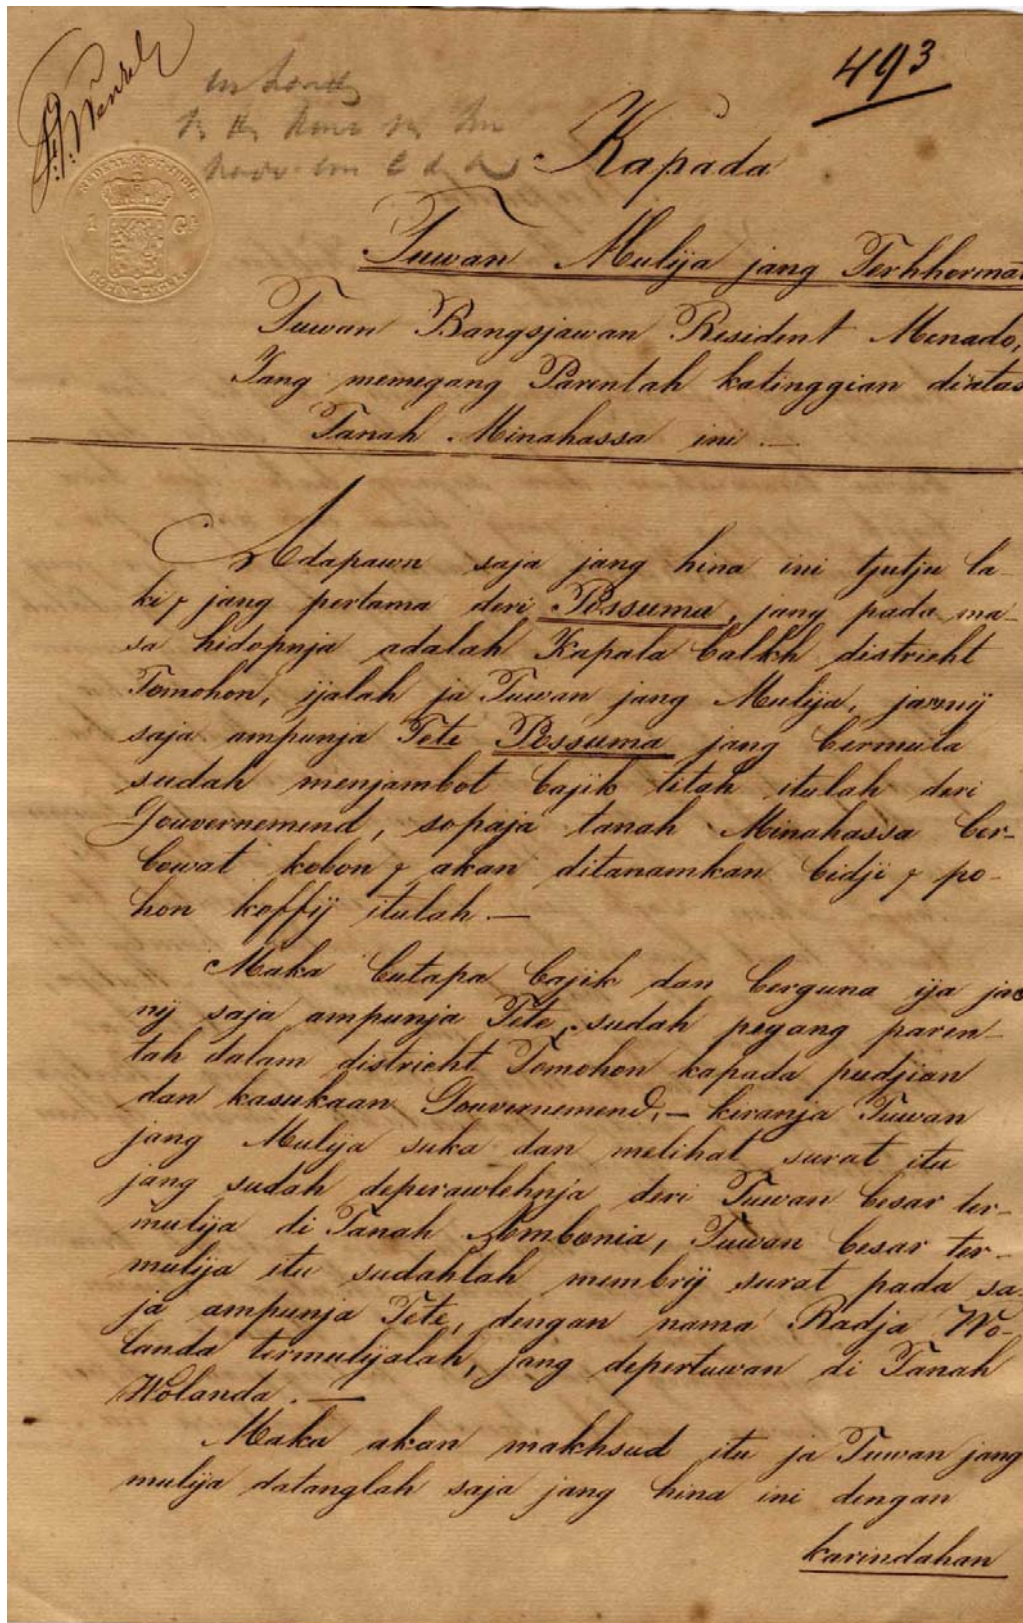 493
P. Wenzel
NEDERL. OOSTINDIE
1 Gl
Kapada
Tuwan Mulija jang Terhhormat
Tuwan Bangsjawan Resident Menado,
Jang memegang Parentah katinggian diatas
Tanah Minahassa ini. —
Adapawn saja jang hina ini tjutju la-
ki, jang pertama deri Possuma, jang pada ma-
sa hidopnja adalah Kapala balkh districht
Tomohon, ijalah ja Tuwan jang Mulija, jaänij
saja ampunja Tete Possuma jang bermula
sudah menjambot bajik titah itulah deri
Gouvernemend, sopaja tanah Minahassa ber-
bowat kobon z akan ditanamkan bidji z po-
hon koffij itulah. —
Maka butapa bajik dan berguna ija jaä
nij saja ampunja Tete, sudah pegang paren-
tah dalam districht Tomohon kapada pudjian
dan kasukaan Gouvernemend; — kiranja Tuwan
jang Mulija suka dan melihat surat itu
jang sudah deperawlehnja deri Tuwan besar ter-
mulija di Tanah Ambonia, Tuwan besar ter-
mulija itu sudahlah membrij surat pada sa-
ja ampunja Tete, dengan nama Radja Wo-
landa termulijalah, jang depertuwan di Tanah
Wolanda. —
Maka akan makhsud itu ja Tuwan jang
mulija datanglah saja jang hina ini dengan
karindahan